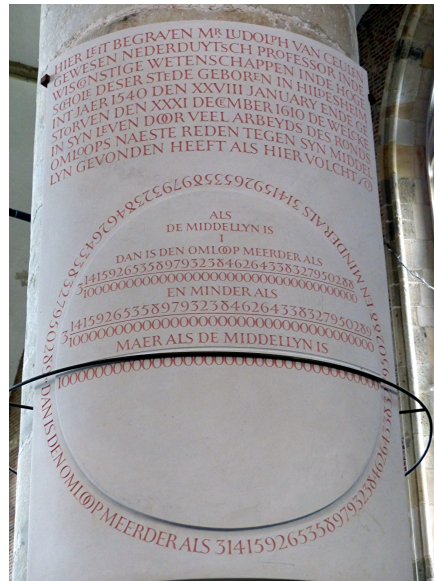 HIER LEIT BEGRAVEN MR. LUDOLPH VAN CEULEN
GEWESEN NEDERDUYTSCH PROFESSOR INDE
WISCONSTIGE WETENSCHAPPEN INDE HOGE
SCHOLE DESER STEDE GEBOREN IN HILDESHEIM
INT JAER 1540 DEN XXVIII JANUARY ENDE GE
STORVEN DEN XXXI DECEMBER 1610 DE WELCKE
IN SYN LEVEN DOOR VEEL ARBEYDS DES RONDS
OMLOOPS NAESTE REDEN TEGEN SYN MIDDEL
LYN GEVONDEN HEEFT ALS HIER VOLCHT
ALS
DE MIDDELLYN IS
1
DAN IS DEN OMLOOP MEERDER ALS
3 14159265358979323846264338327950288
100000000000000000000000000000000000
EN MINDER ALS
3 14159265358979323846264338327950289
100000000000000000000000000000000000
MAER ALS DE MIDDELLYN IS
100000000000000000000000000000000000
DAN IS DEN OMLOOP MEERDER ALS 314159265358979323846264338
EN MINDER ALS 314159265358979323846264338327950289